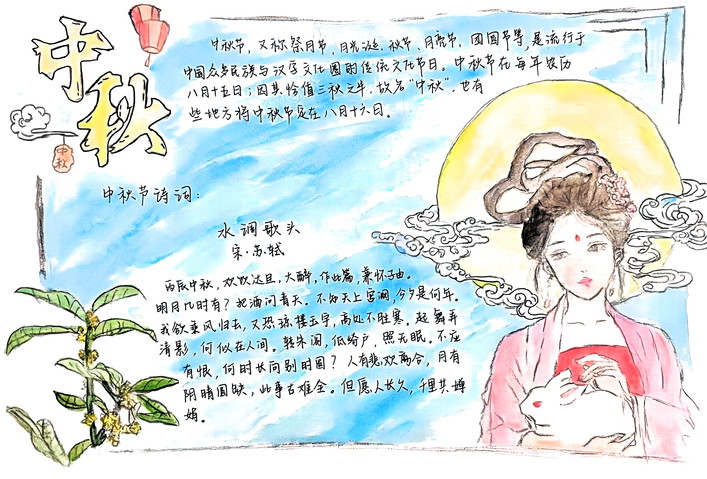 中秋
中秋
中秋节，又称祭月节、月光诞、秋节、月亮节、团圆节等，是流行于
中国众多民族与汉字文化圈的传统文化节日。中秋节在每年农历
八月十五日；因其恰值三秋之半，故名“中秋”，也有
些地方将中秋节定在八月十六日。
中秋节诗词：
水调歌头
宋·苏轼
丙辰中秋，欢饮达旦，大醉，作此篇，兼怀子由。
明月几时有？把酒问青天。不知天上宫阙，今夕是何年。
我欲乘风归去，又恐琼楼玉宇，高处不胜寒。起舞弄
清影，何似在人间。转朱阁，低绮户，照无眠。不应
有恨，何时长向别时圆？人有悲欢离合，月有
阴晴圆缺，此事古难全。但愿人长久，千里共婵
娟。